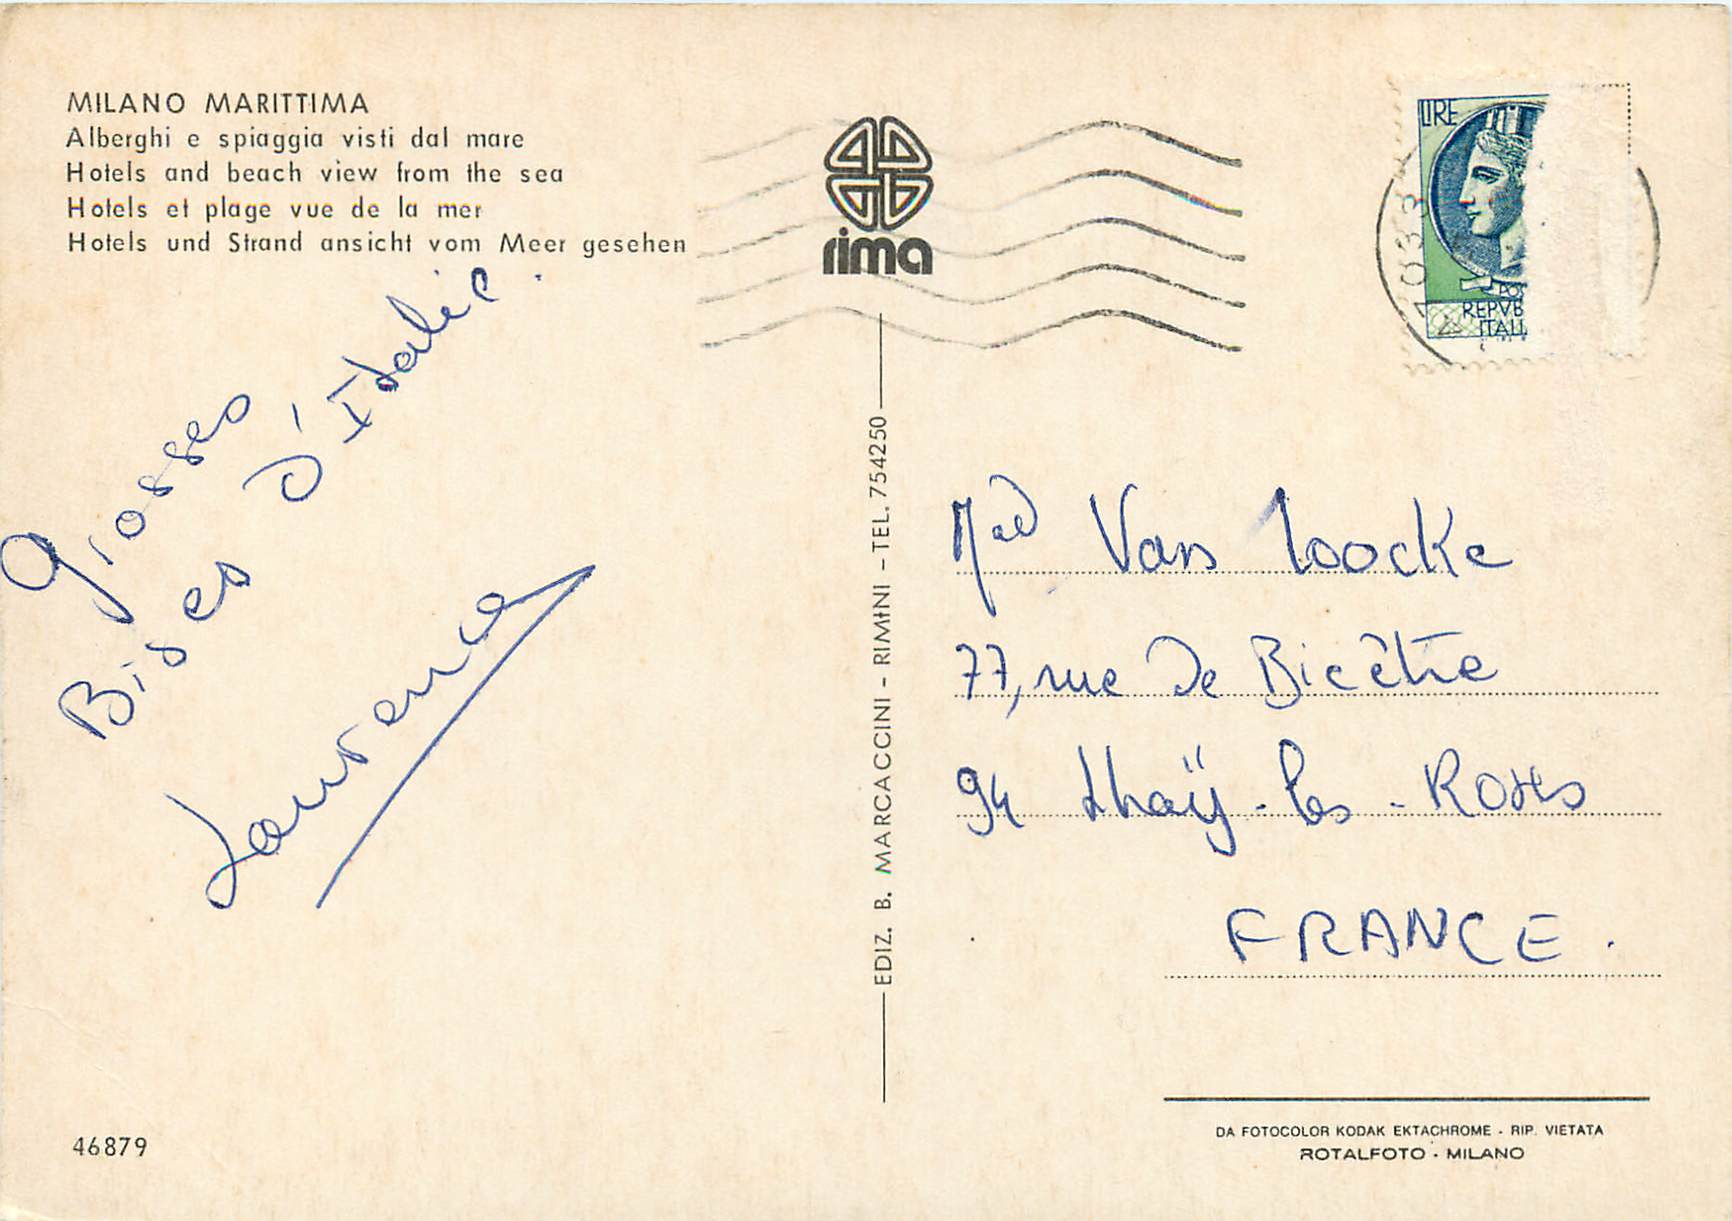 MILANO MARITTIMA
Alberghi e spiaggia visti dal mare
Hotels and beach view from the sea
Hotels et plage vue de la mer
Hotels und Strand ansicht vom Meer gesehen
Grosses
Bises d'Italie.
Laurence
46879
rima
EDIZ. B. MARCACCINI - RIMINI - TEL. 754250
LIRE
REPVB
ITALI
Van Loocke
77, rue de Bicêtre
94 Lhaÿ-les-Roses
FRANCE.
DA FOTOCOLOR KODAK EKTACHROME - RIP. VIETATA
ROTALFOTO - MILANO